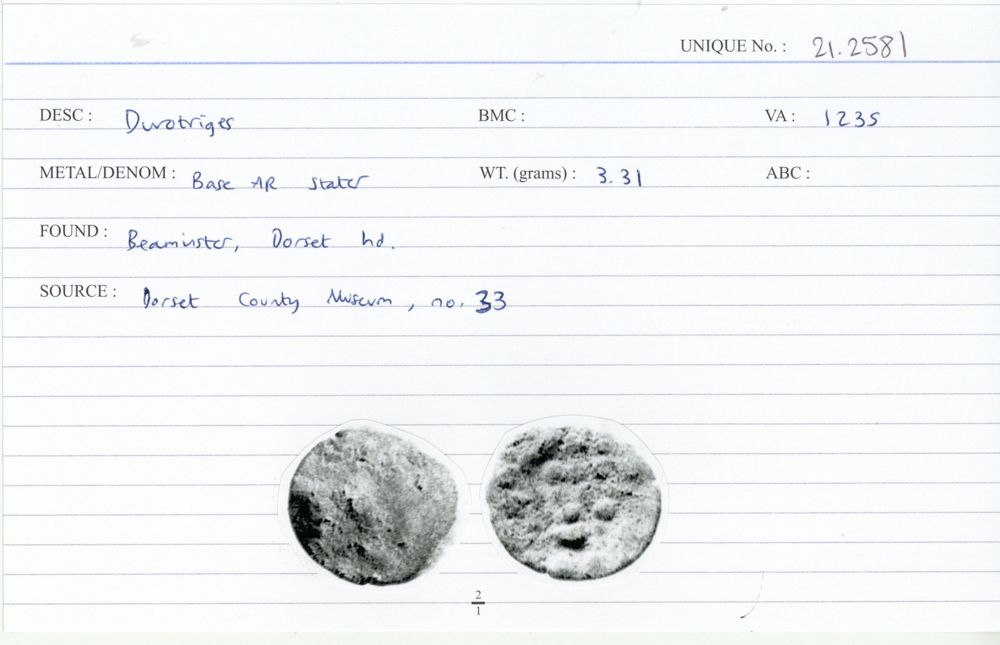 UNIQUE No. : 21.2581
DESC : Durotriges BMC : VA : 1235
METAL/DENOM : Base AR stater WT. (grams) : 3.31 ABC :
FOUND : Beaminster, Dorset hd.
SOURCE : Dorset County Museum, no. 33
2
1